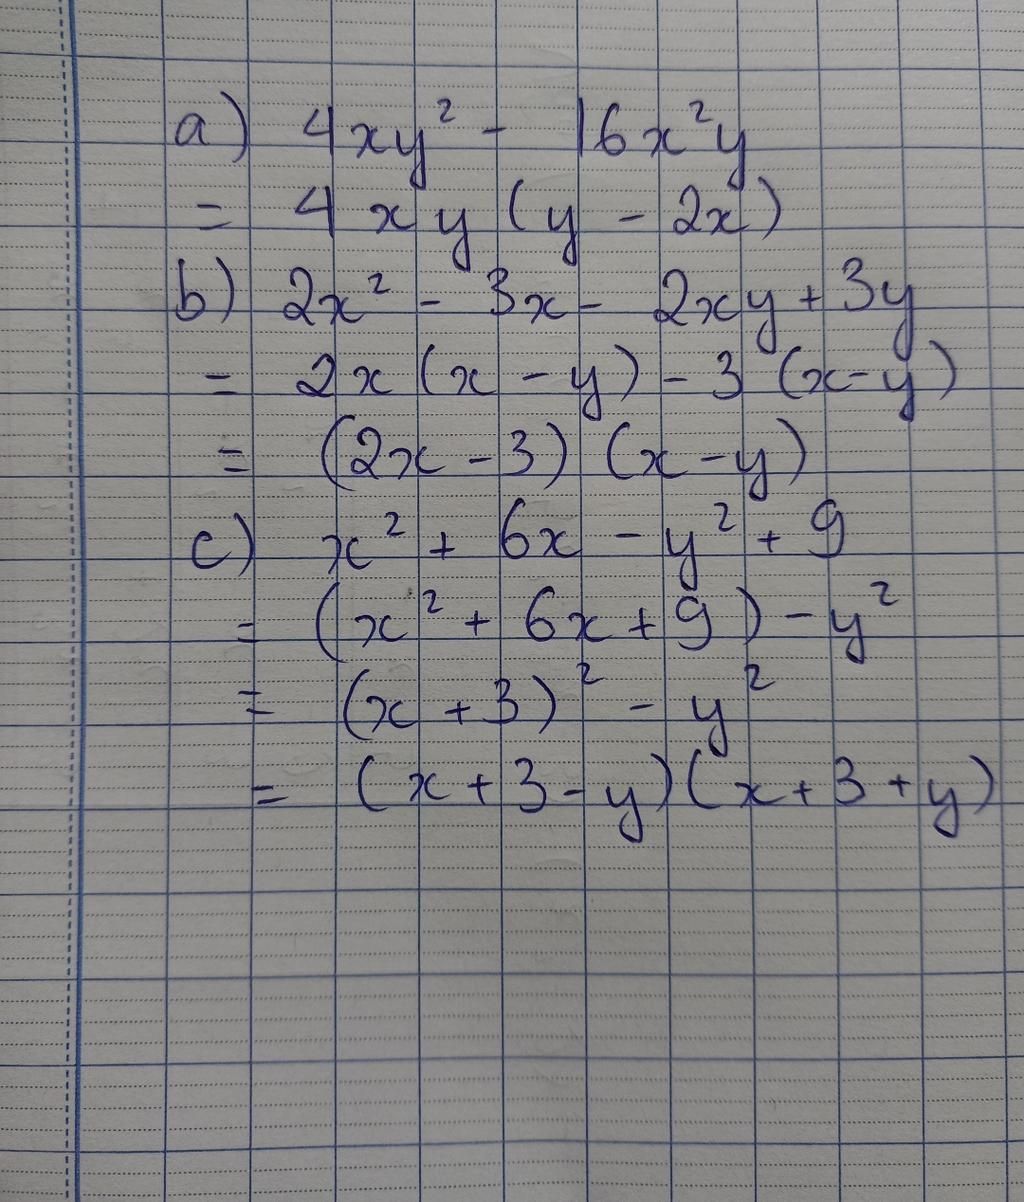 a) 4xy² - 16x²y
= 4xy(y - 2x)
b) 2x² - 3x - 2xy + 3y
= 2x(x - y) - 3(x-y)
= (2x - 3)(x - y)
c) x² + 6x - y² + 9
= (x² + 6x + 9) - y²
= (x + 3)² - y²
= (x + 3 - y)(x + 3 + y)